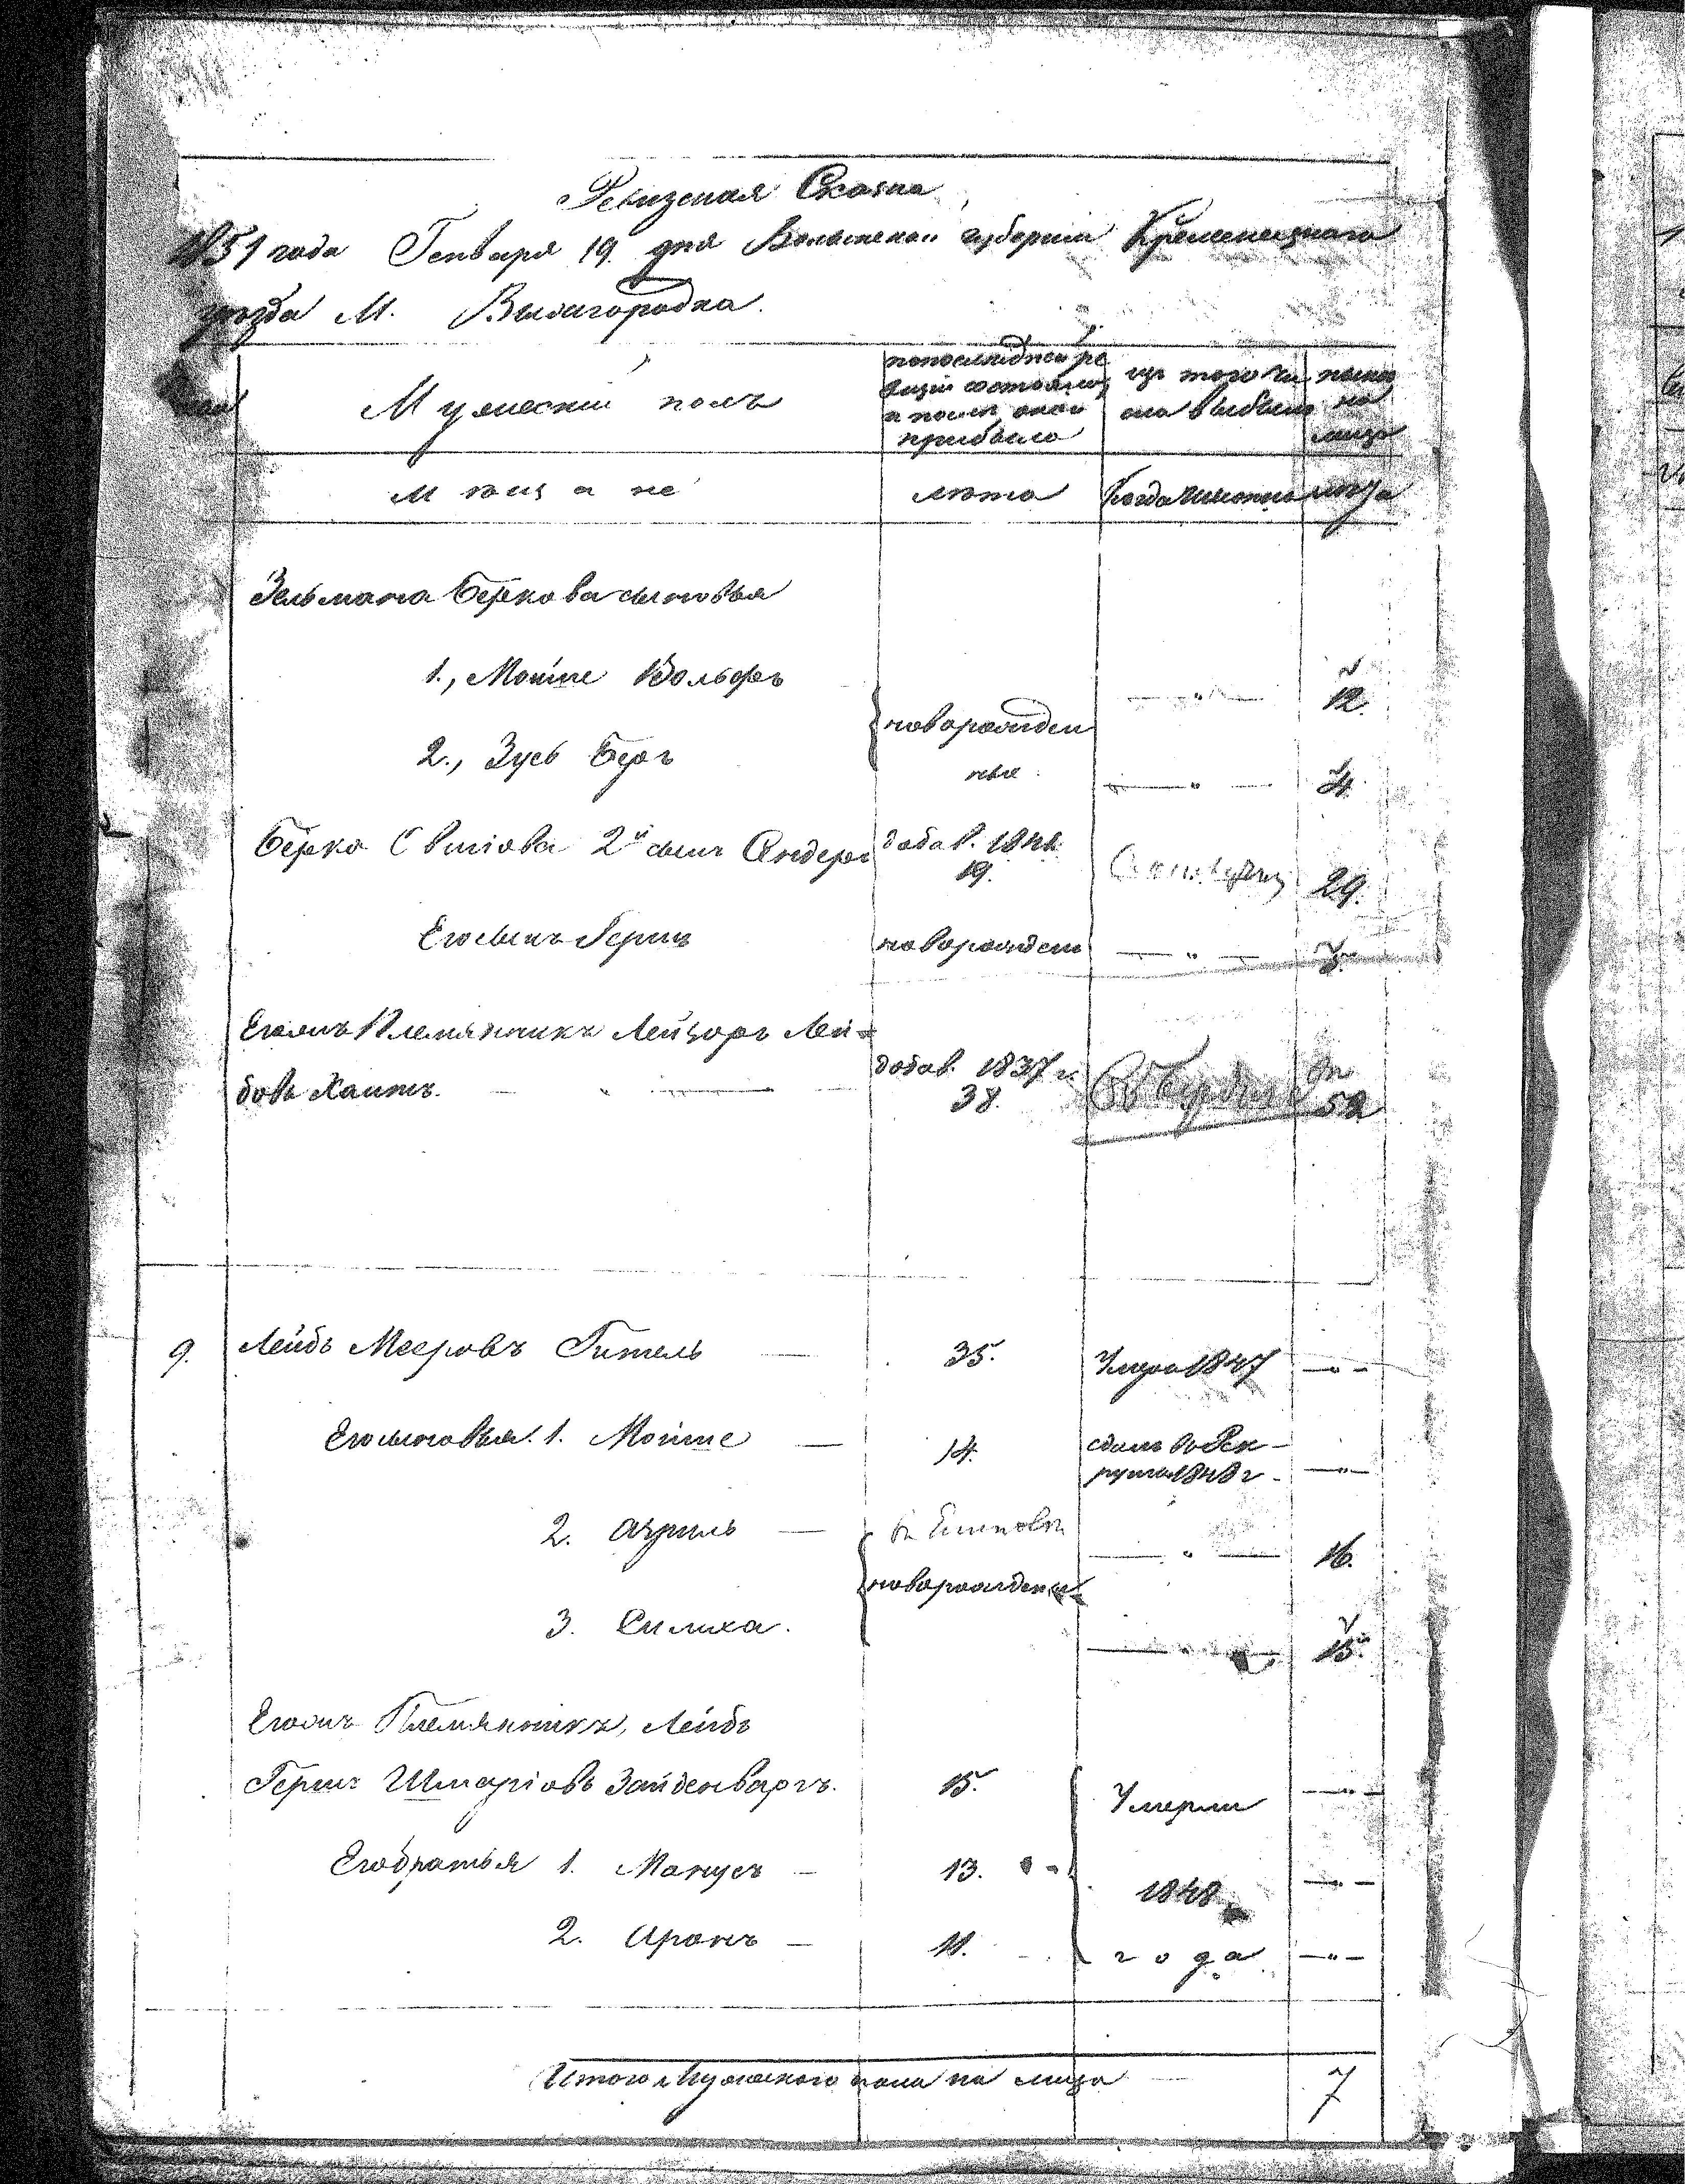 Ревизская Сказка
1851 года Генваря 19 дня Волынской губернии Кременецкаго
уезда М. Вышгородка.
Мужеский полъ
по последней ре
визіи состояло,
и после оной
прибыло
изъ того чи
сла выбыло
ныне
на
лицо
Мещане
лета
когда именно
лета
Зельмана Беркова сыновья
1., Мошке Вольфъ
новорожден
ные
—"—
12.
2., Зусь Беръ
—"—
4.
Берко 2й сынъ Сендеръ
добав. 184
19.
29.
Его сынъ Герши
новорожден
—"—
Его племянникъ Лейзоръ Лей-
бовъ Хаитъ. — " —
добав. 1837 г.
38.
52
9.
Лейбъ Мееровъ Гитель —
35.
Умеръ 1847
—"—
Его сыновья. 1. Мошке —
14.
сданъ въ Рек-
руты 1848 г.
—"—
2. Азриль —
новорожден
—"—
16.
3. Симха.
—"—
15.
Его племянникъ, Лейбъ
Гершъ Шмаріовъ Зайденваргъ.
15.
Умерли
—"—
Его братья 1. Манусъ —
13.
1848
—"—
2. Аронъ —
11.
года
—"—
Итого Мужескаго пола на лицо
7